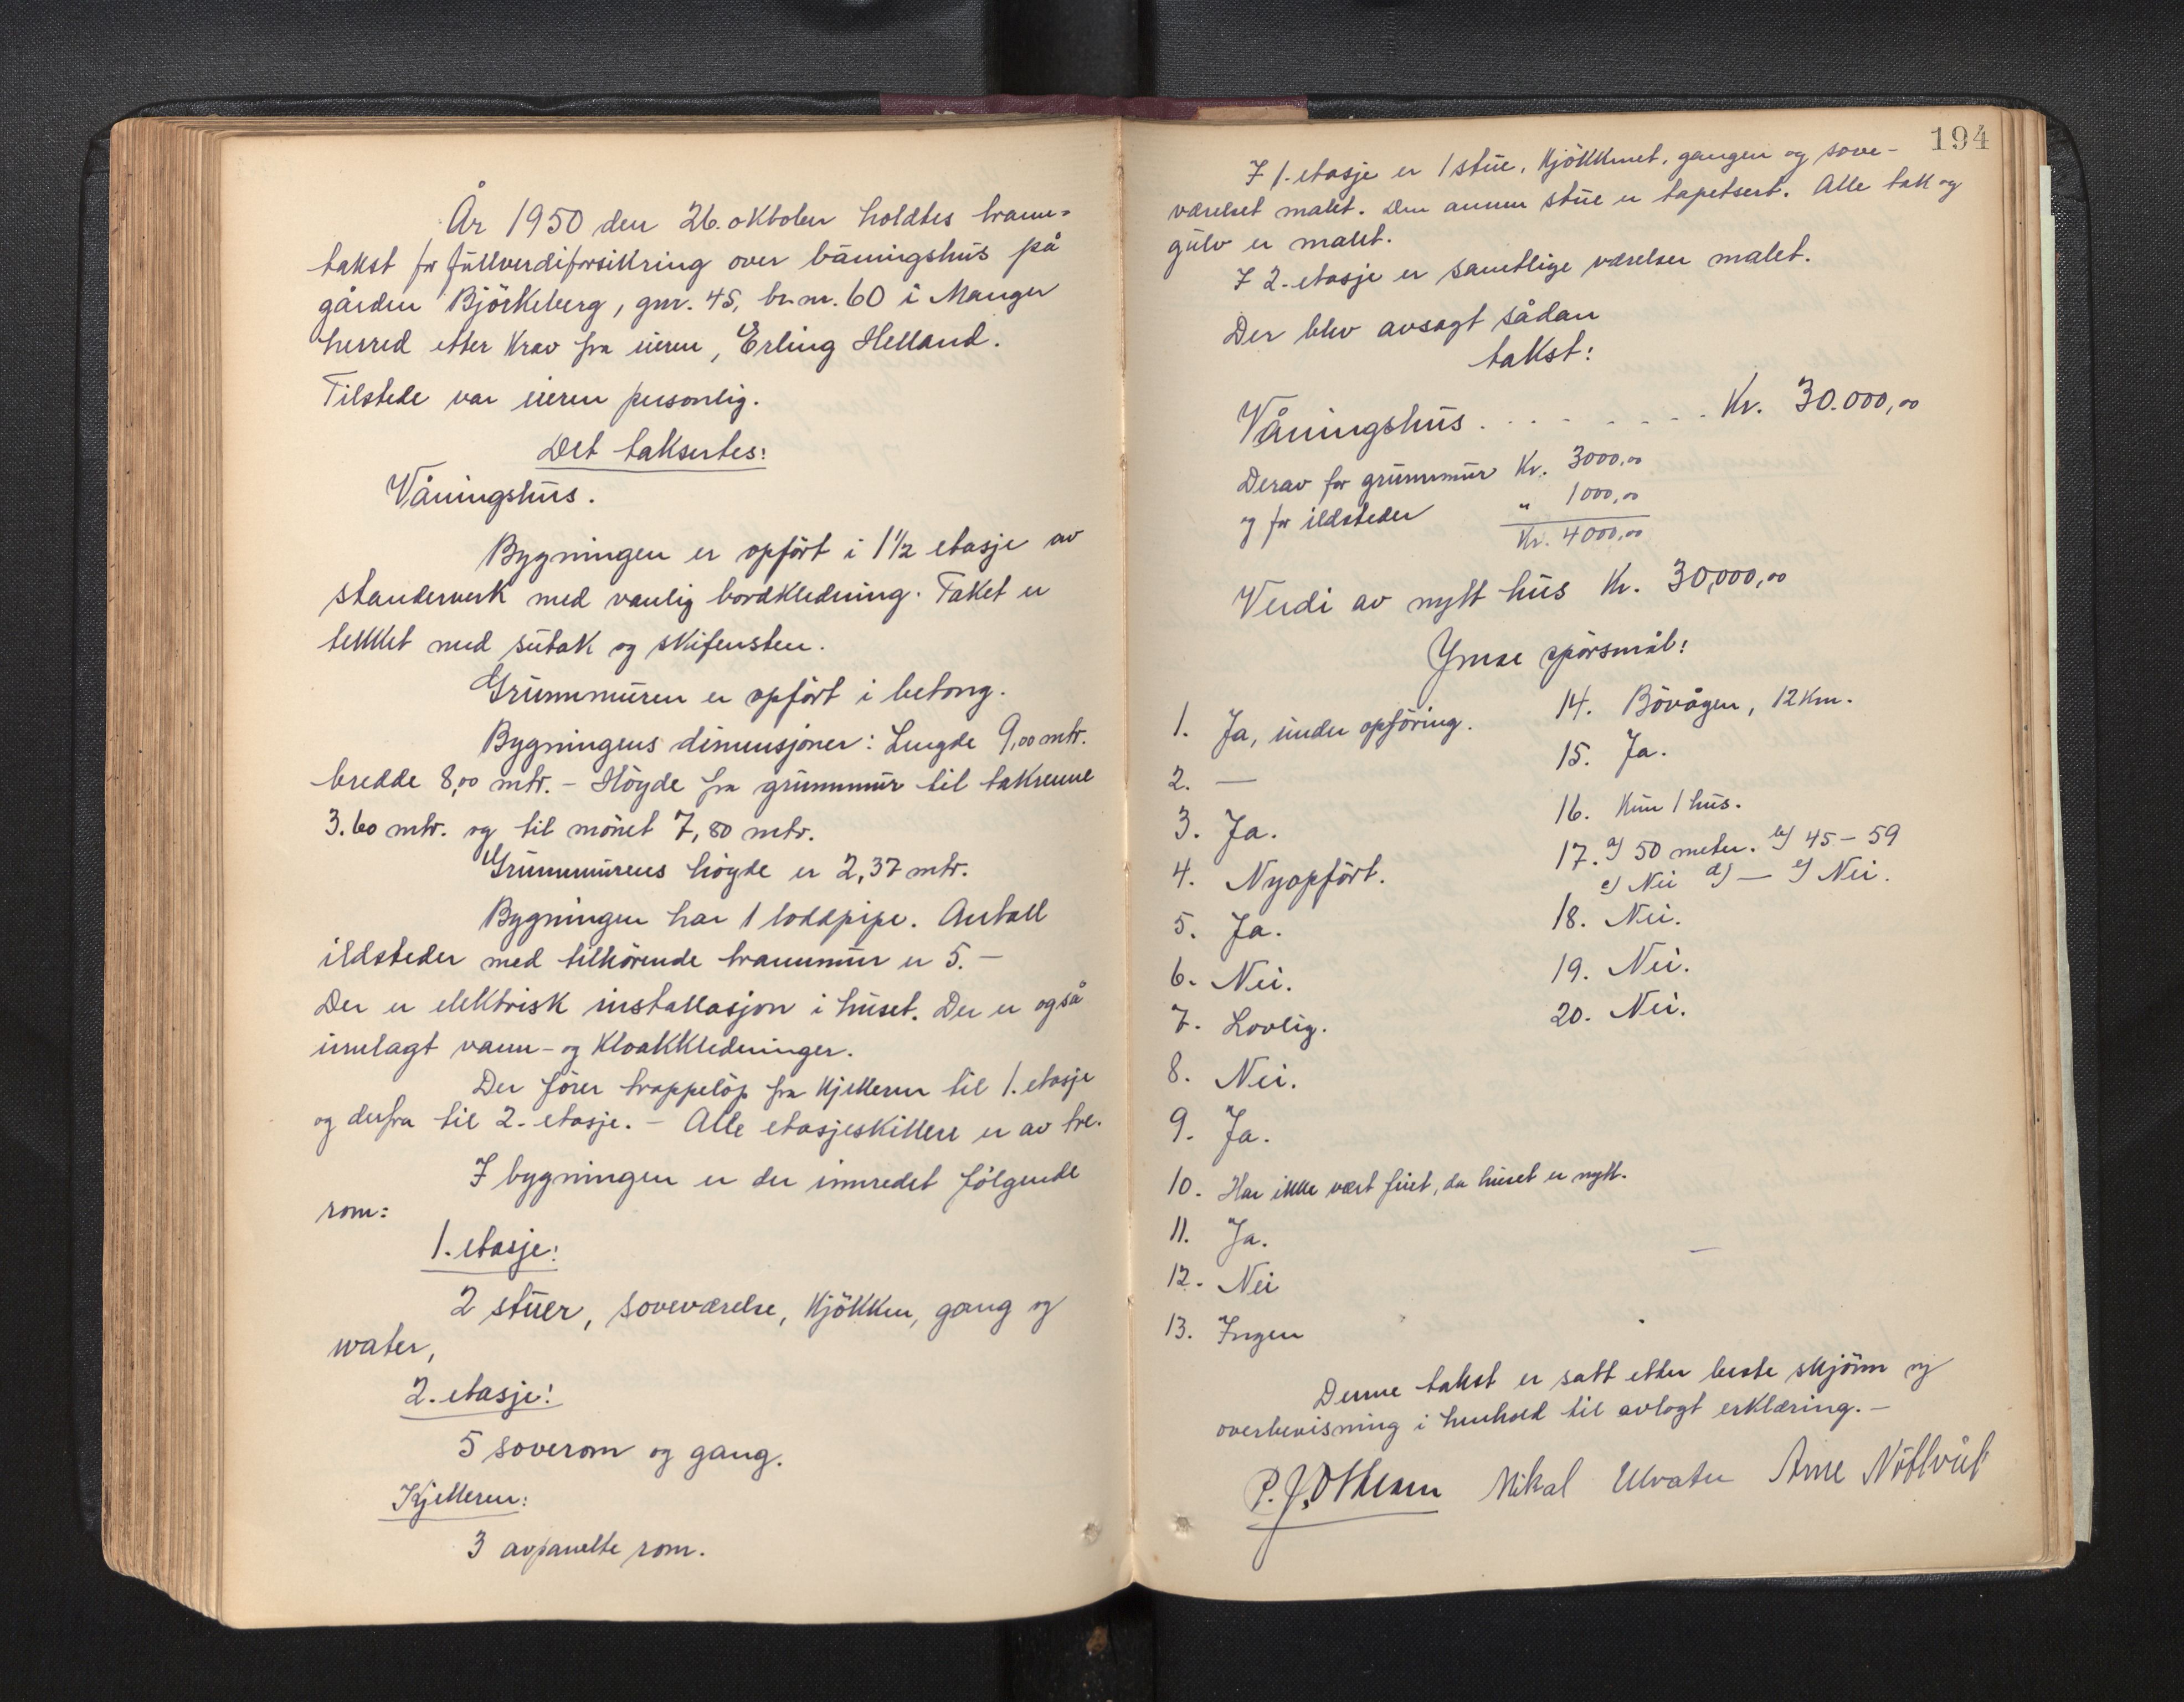 År 1950 den 26. oktober holdtes brann-
takst for fullverdiforsikring over våningshus på
gården Björkeberg, gnr. 45, br.nr. 60 i Manger
herred etter krav fra eieren, Erling Helland.
Tilstede var eieren personlig.
Det taksertes:
Våningshus.
Bygningen er opfört i 1 1/2 etasje av
standerverk med vanlig bordkledning. Taket er
tekket med sutak og skifersten.
Grunnmuren er opfört i betong.
Bygningens dimensjoner: Lengde 9,00 mtr.
bredde 8,00 mtr. - Höyde fra grunnmur til takrenne
3.60 mtr. og til mönet 7,80 mtr.
Grunnmurens höyde er 2,37 mtr.
Bygningen har 1 loddpipe. Antall
ildsteder med tilhörende brannmur er 5. -
Der er elektrisk installasjon i huset. Der er også
innlagt vann- og kloakkledninger.
Der förer trappelöp fra kjelleren til 1. etasje
og derfra til 2. etasje. - Alle etasjeskillere er av tre.
I bygningen er der innredet fölgende
rom:
1. etasje:
2 stuer, soveværelse, kjökken, gang og
water,
2. etasje:
5 soverom og gang.
Kjelleren:
3 avpanelte rom.
194
I 1. etasje er 1 stue, kjökkenet, gangen og sove-
værelset malet. Den annen stue er tapetsert. Alle tak og
gulv er malet.
I 2. etasje er samtlige værelser malet.
Der blev avsagt sådan
takst:
Våningshus . . . . . . . . Kr. 30.000,00
Derav for grunnmur Kr. 3000,00
og for ildsteder " 1000,00
Kr. 4000,00
Verdi av nytt hus Kr. 30,000,00
Ymse spörsmål:
1. Ja, under opföring.
2. —
3. Ja.
4. Nyopfört.
5. Ja.
6. Nei.
7. Lovlig.
8. Nei.
9. Ja.
10. Har ikke vært feiet, da huset er nytt.
11. Ja.
12. Nei
13. Ingen
14. Bövågen, 12 km.
15. Ja.
16. Kun 1 hus.
17. a) 50 meter. b) 45 - 59
c) Nei d) — e) Nei.
18. Nei.
19. Nei.
20. Nei.
Denne takst er satt etter beste skjönn og
overbevisning i henhold til avlagt erklæring. -
P. J. Othesen Mikal Ulvatn Arne Nöttveit